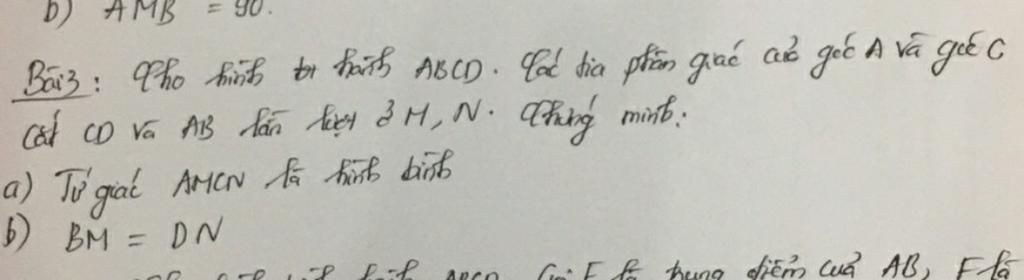 b) AMB = 90.
Bài 3: Cho hình bì hành ABCD. Các tia phân giác củ góc A và góc C
cắt CD và AB lần lượt ở M, N. Chứng minh:
a) Tứ giác AMCN là hình bình
b) BM = DN
ABCD. Gọi E là trung điểm của AB, F là